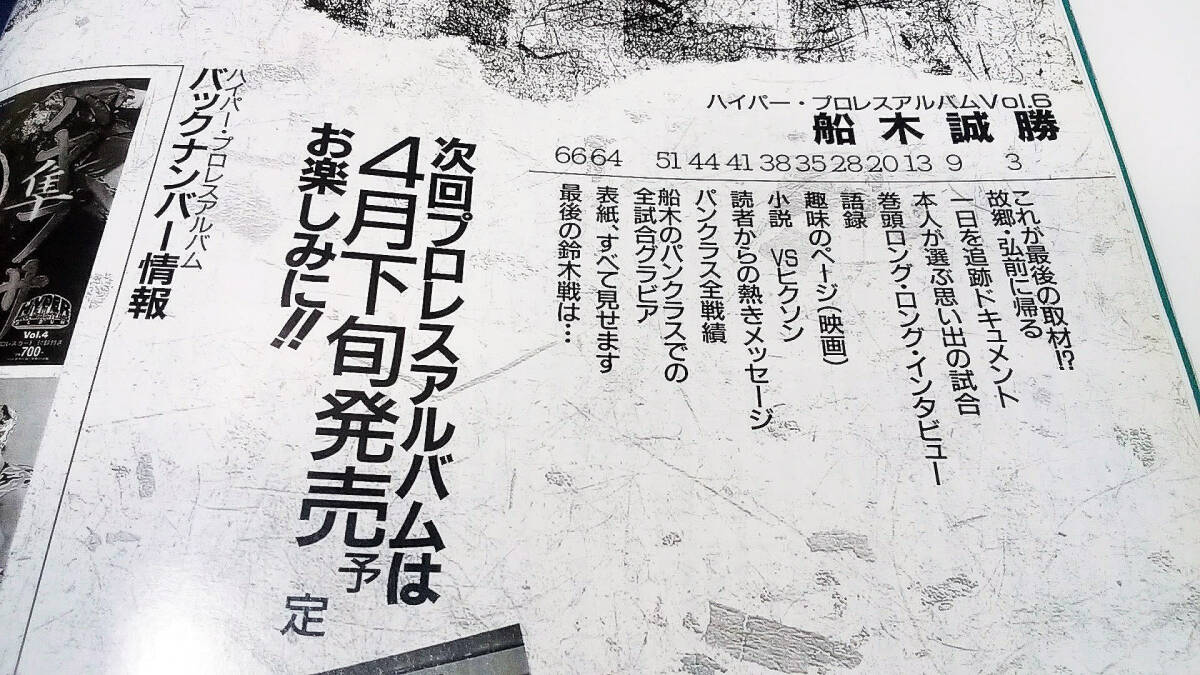 ハイパー・プロレスアルバムVol.6
船木誠勝
66 64 51 44 41 38 35 28 20 13 9 3
これが最後の取材!?
故郷・弘前に帰る
一日を追跡ドキュメント
本人が選ぶ思い出の試合
巻頭ロング・ロング・インタビュー
語録
趣味のページ（映画）
小説　VSヒクソン
読者からの熱きメッセージ
パンクラス全戦績
船木のパンクラスでの
全試合グラビア
表紙、すべて見せます
最後の鈴木戦は…
次回プロレスアルバムは
4月下旬発売予定
お楽しみに!!
ハイパー・プロレスアルバム
バックナンバー情報
隼
HYPER
Vol.4
700-